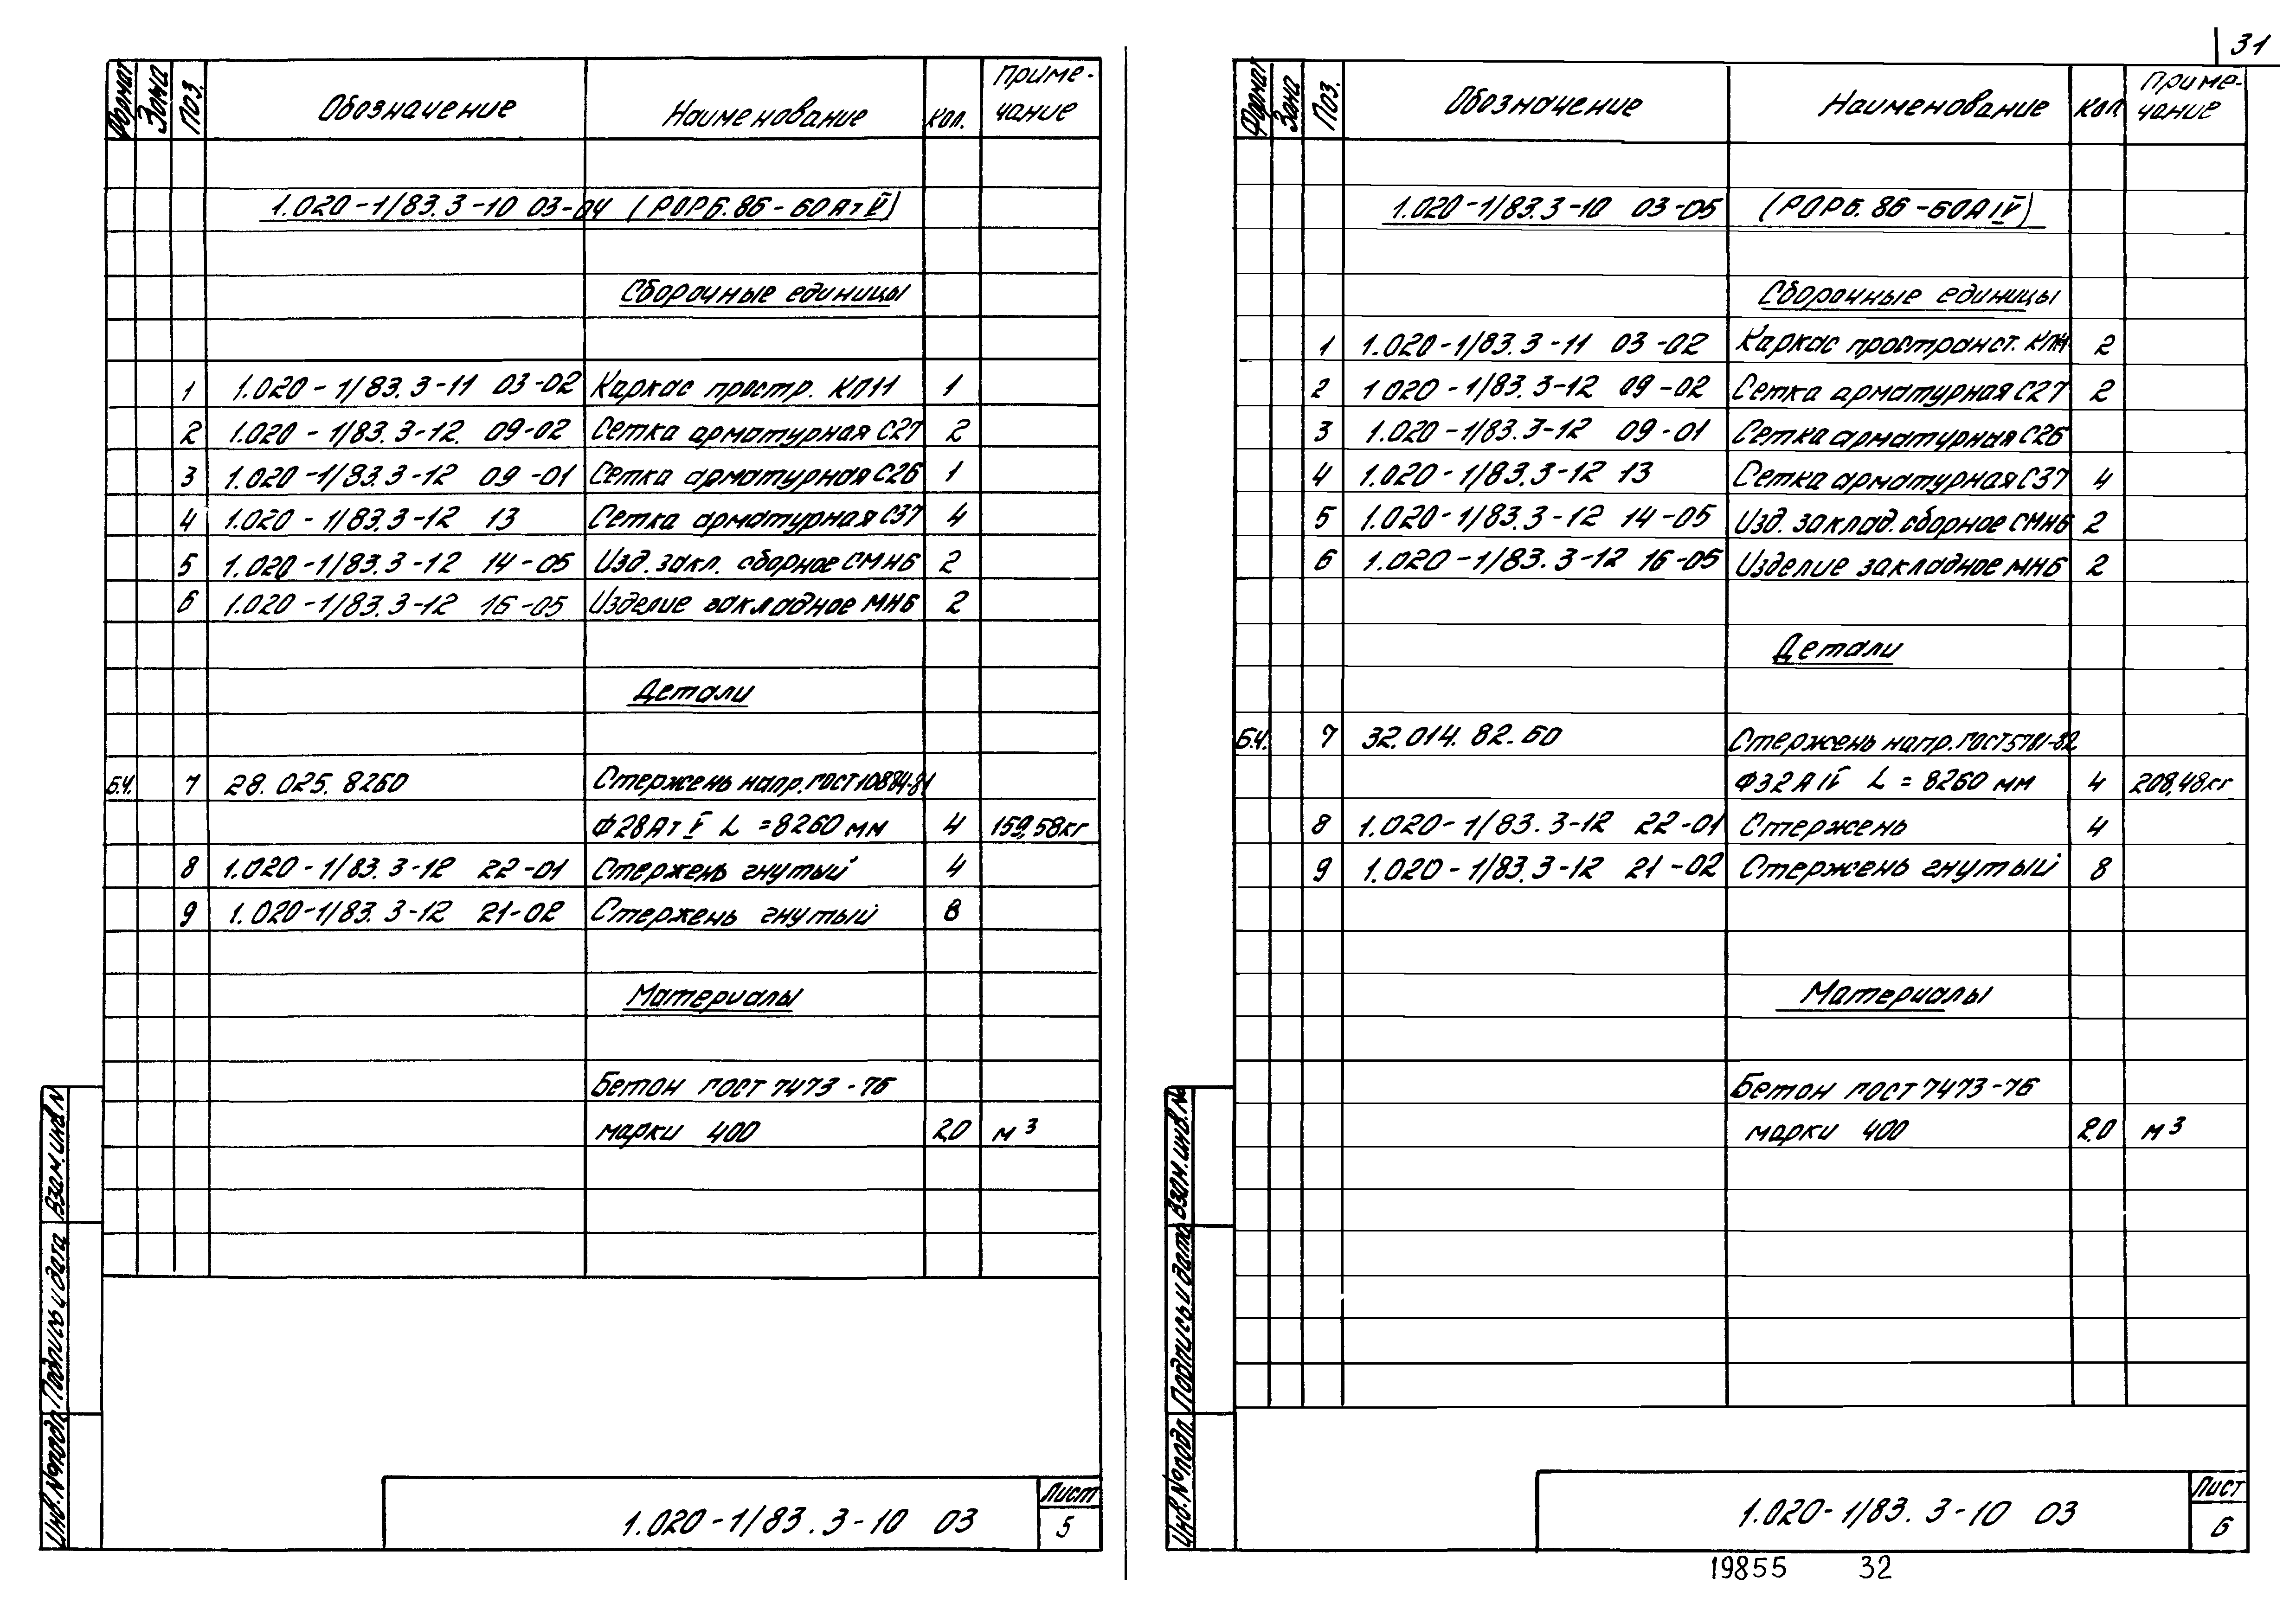 31
Формат Зона Поз. Обозначение Наименование Кол. Приме-
чание
1.020-1/83.3-10 03-04 (РОР6.86-60АтV)
Сборочные единицы
1 1.020-1/83.3-11 03-02 Каркас простр. КП11 1
2 1.020-1/83.3-12. 09-02 Сетка арматурная С27 2
3 1.020-1/83.3-12 09-01 Сетка арматурная С26 1
4 1.020-1/83.3-12 13 Сетка арматурная С37 4
5 1.020-1/83.3-12 14-05 Изд. закл. сборное СМН6 2
6 1.020-1/83.3-12 16-05 Изделие закладное МН6 2
Детали
Б.Ч. 7 28.025.8260 Стержень напр. ГОСТ10884-81
Ф28АтV L=8260 мм 4 159,58кг
8 1.020-1/83.3-12 22-01 Стержень гнутый 4
9 1.020-1/83.3-12 21-02 Стержень гнутый 8
Материалы
Бетон ГОСТ 7473-76
марки 400 2,0 м³
Взам. инв N
Подпись и дата
Инв. №подл
1.020-1/83.3-10 03 Лист
5
Формат Зона Поз. Обозначение Наименование Кол. Приме-
чание
1.020-1/83.3-10 03-05 (РОР6.86-60АIV)
Сборочные единицы
1 1.020-1/83.3-11 03-02 Каркас пространст. 2
2 1.020-1/83.3-12 09-02 Сетка арматурная С27 2
3 1.020-1/83.3-12 09-01 Сетка арматурная С26
4 1.020-1/83.3-12 13 Сетка арматурная С37 4
5 1.020-1/83.3-12 14-05 Изд. заклад. сборное СМН6 2
6 1.020-1/83.3-12 16-05 Изделие закладное МН6 2
Детали
Б.Ч. 7 32.014.82.60 Стержень напр. ГОСТ5781-82
Ф32АIV L=8260 мм 4 208,48кг
8 1.020-1/83.3-12 22-01 Стержень 4
9 1.020-1/83.3-12 21-02 Стержень гнутый 8
Материалы
Бетон ГОСТ 7473-76
марки 400 2,0 м³
Взам. инв. №
Подпись и дата
Инв. №подл.
1.020-1/83.3-10 03 Лист
6
19855 32